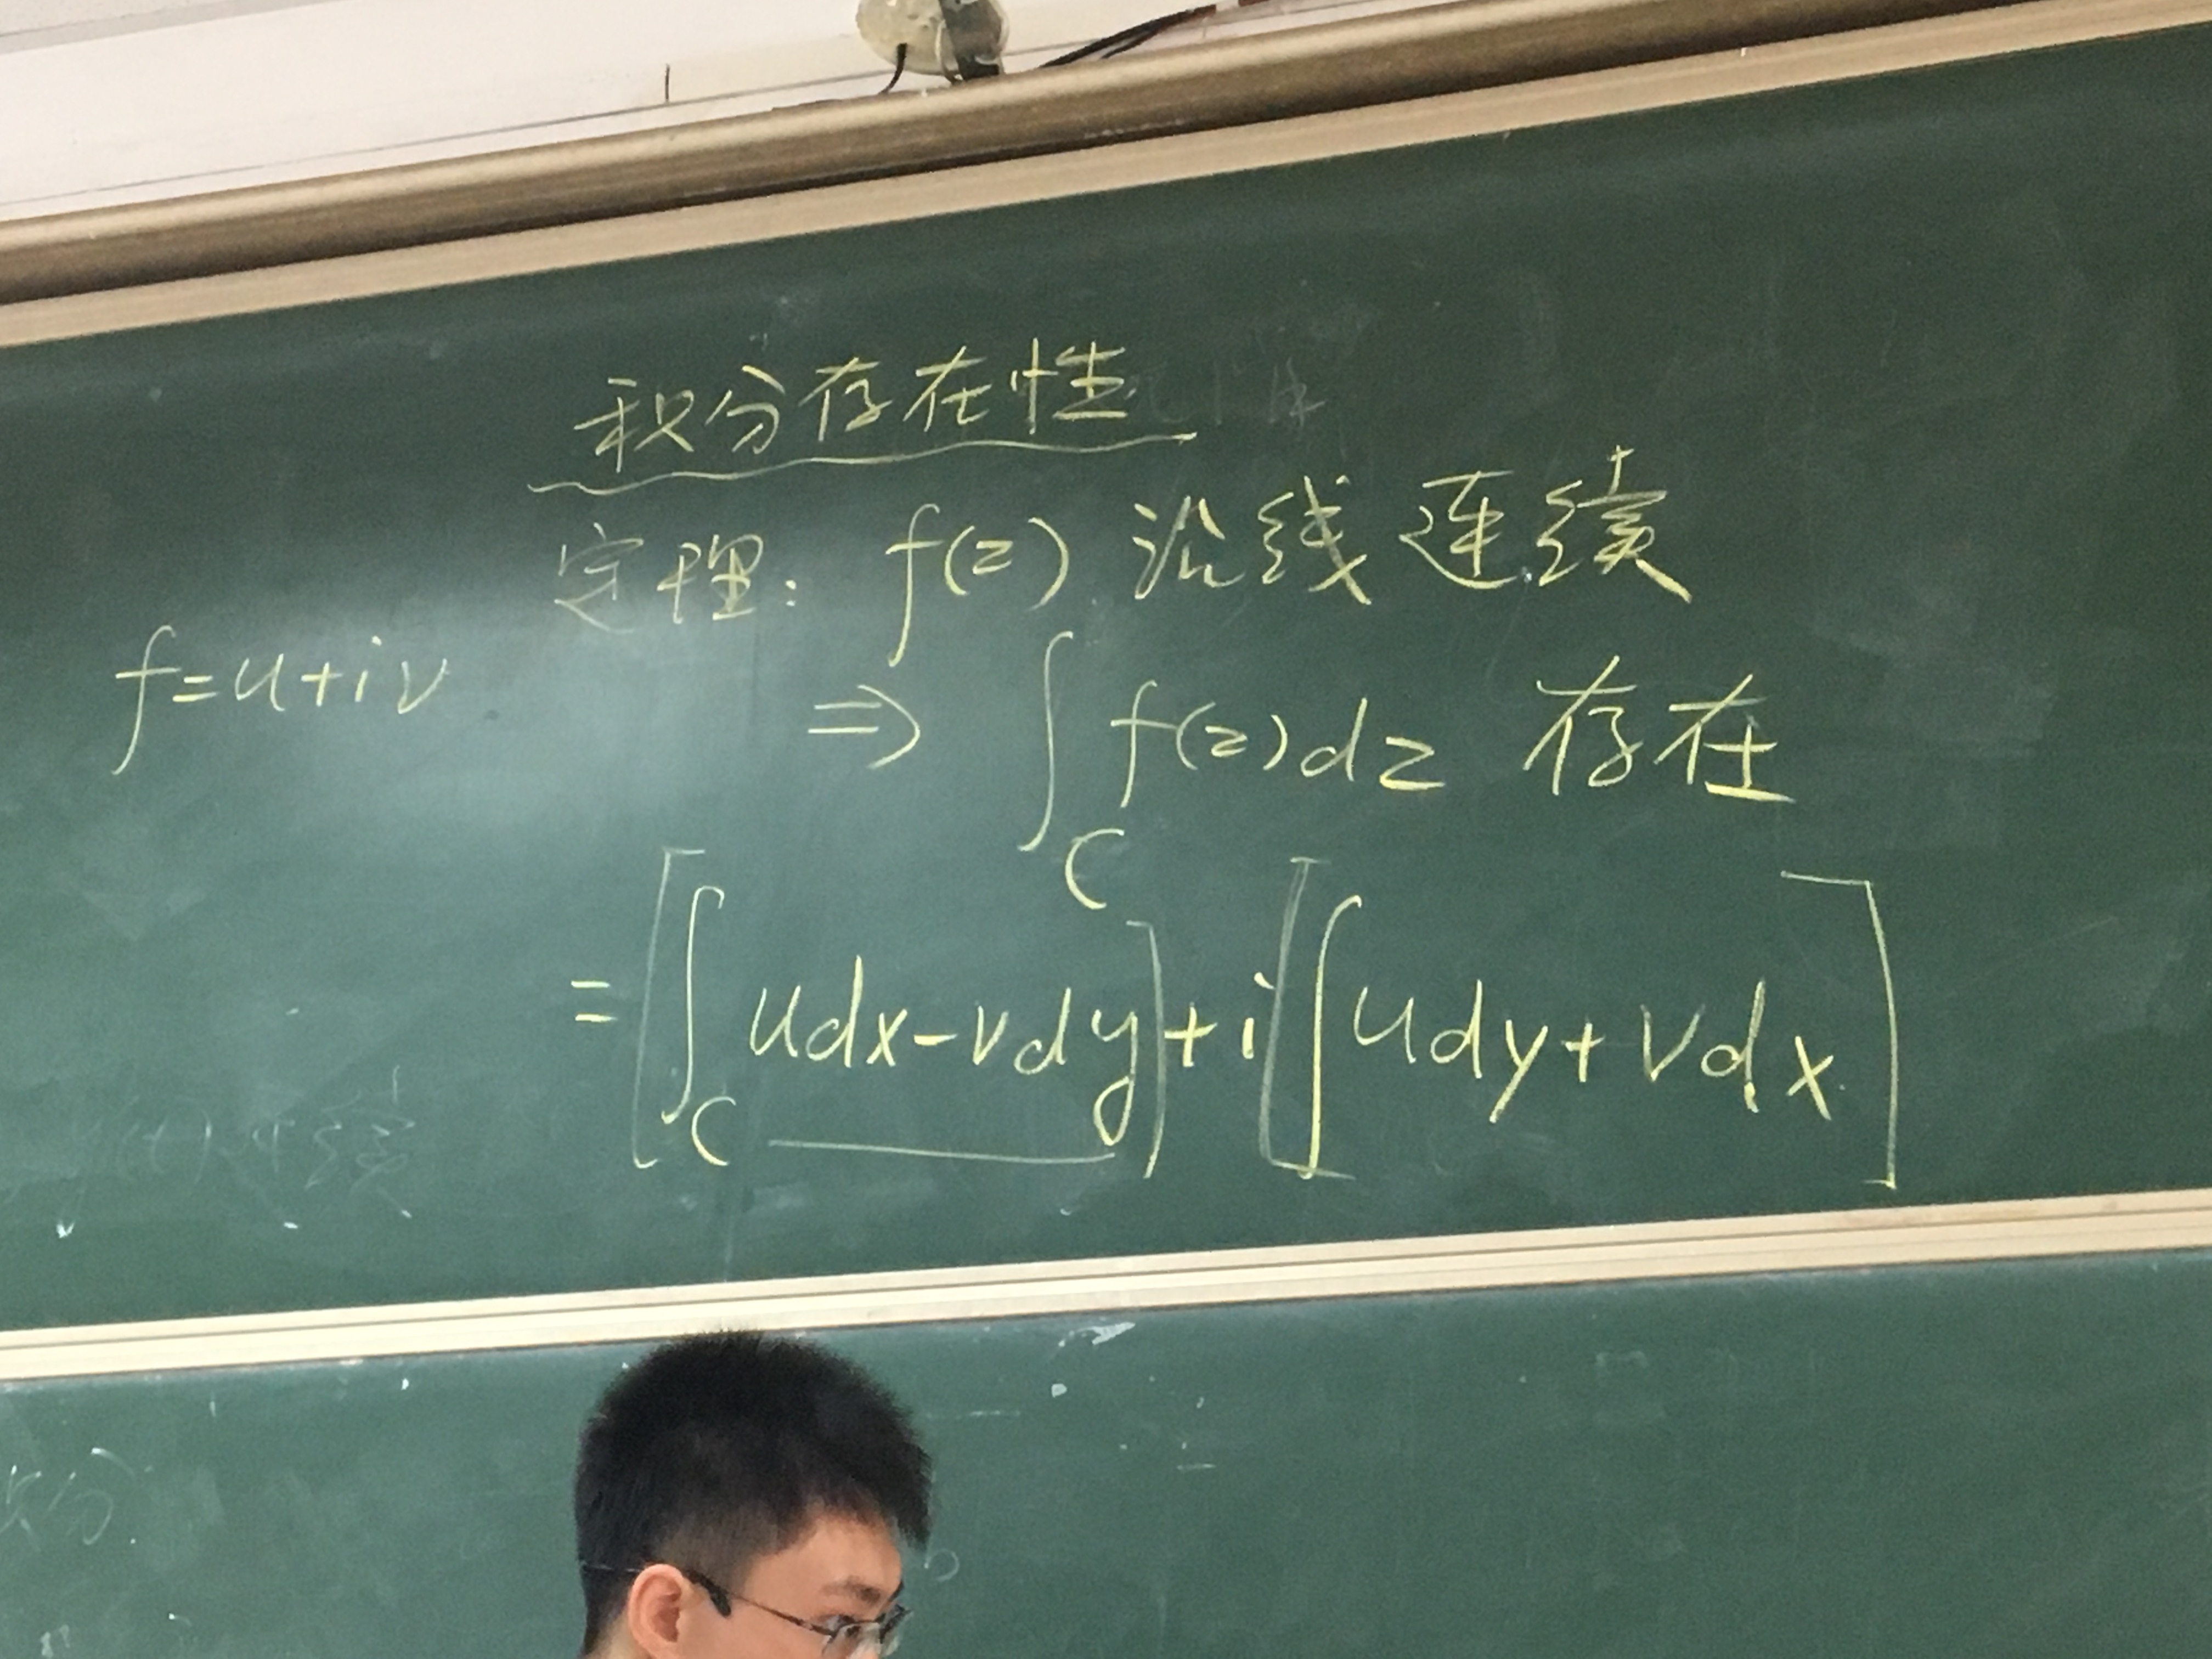 积分存在性
定理: f(z) 沿线连续
f=u+iv
⇒ ∫_C f(z)dz 存在
=[∫_C udx-vdy]+i[∫udy+vdx]